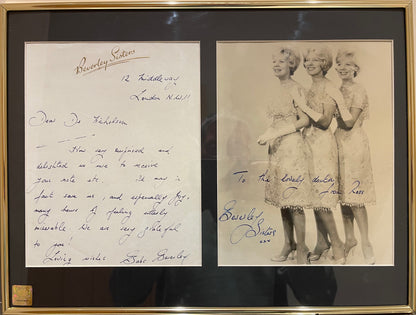 Beverley Sisters
12 Middleway
London N.W.11
Dear Dr Nicholson
How very surprised and
delighted we were to receive
your note etc. It may in
fact save me, and especially Joy,
many hours of feeling utterly
miserable. We are very grateful
to you!
Loving wishes Babs Beverley
To the lovely
from
Beverley
Sisters
xxx